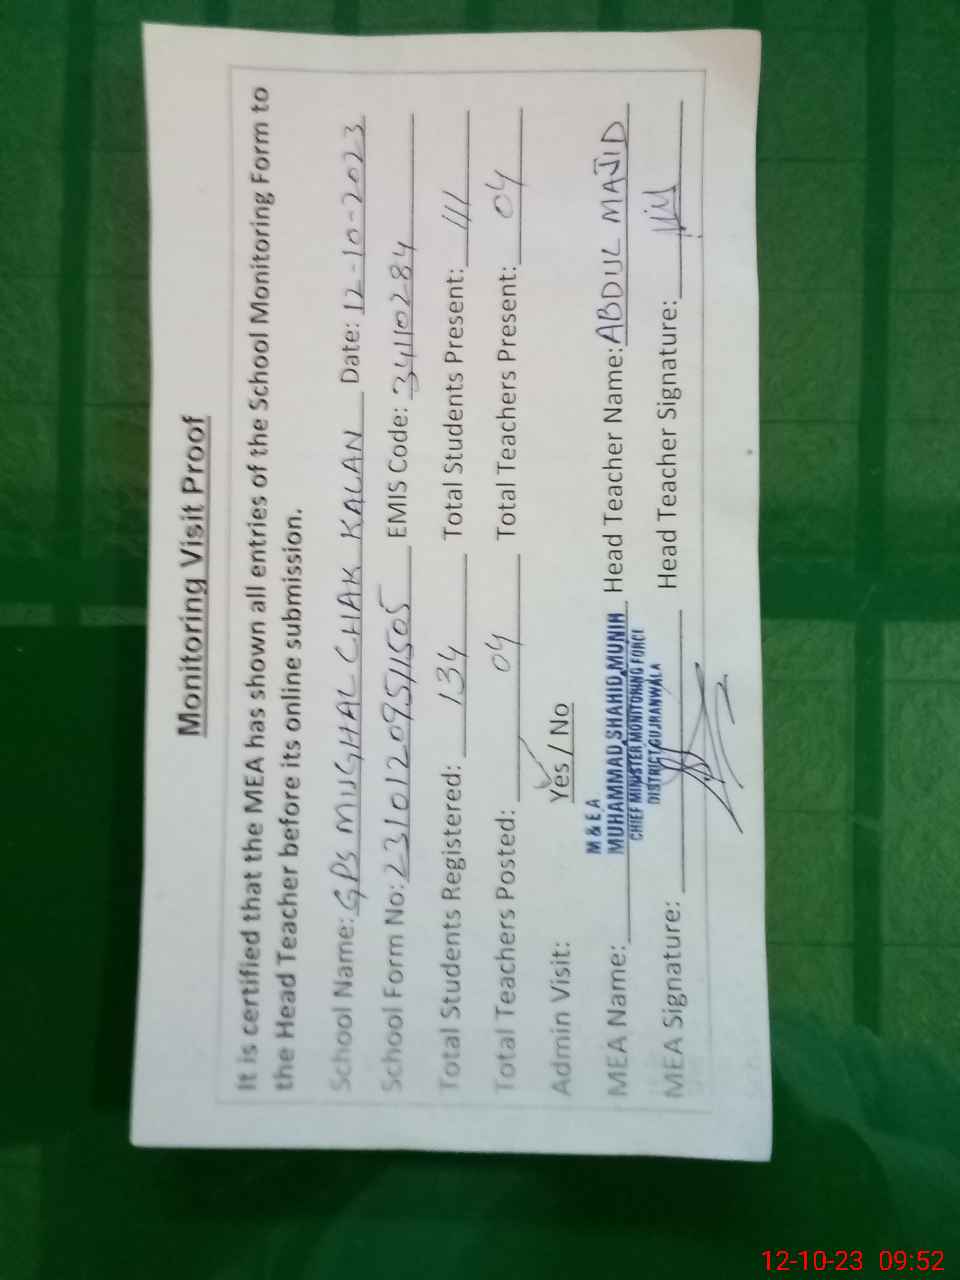 Monitoring Visit Proof
It is certified that the MEA has shown all entries of the School Monitoring Form to
the Head Teacher before its online submission.
School Name: GPS MUGHAL CHAK KALAN Date: 12-10-2023
School Form No: 23101209511505 EMIS Code: 34110284
Total Students Registered: 134 Total Students Present: 111
Total Teachers Posted: 04 Total Teachers Present: 04
Admin Visit: Yes / No
M & E A
MEA Name: MUHAMMAD SHAHID MUNIR Head Teacher Name: ABDUL MAJID
CHIEF MINISTER MONITORING FORCE
DISTRICT GUJRANWALA
MEA Signature: Head Teacher Signature:
12-10-23 09:52